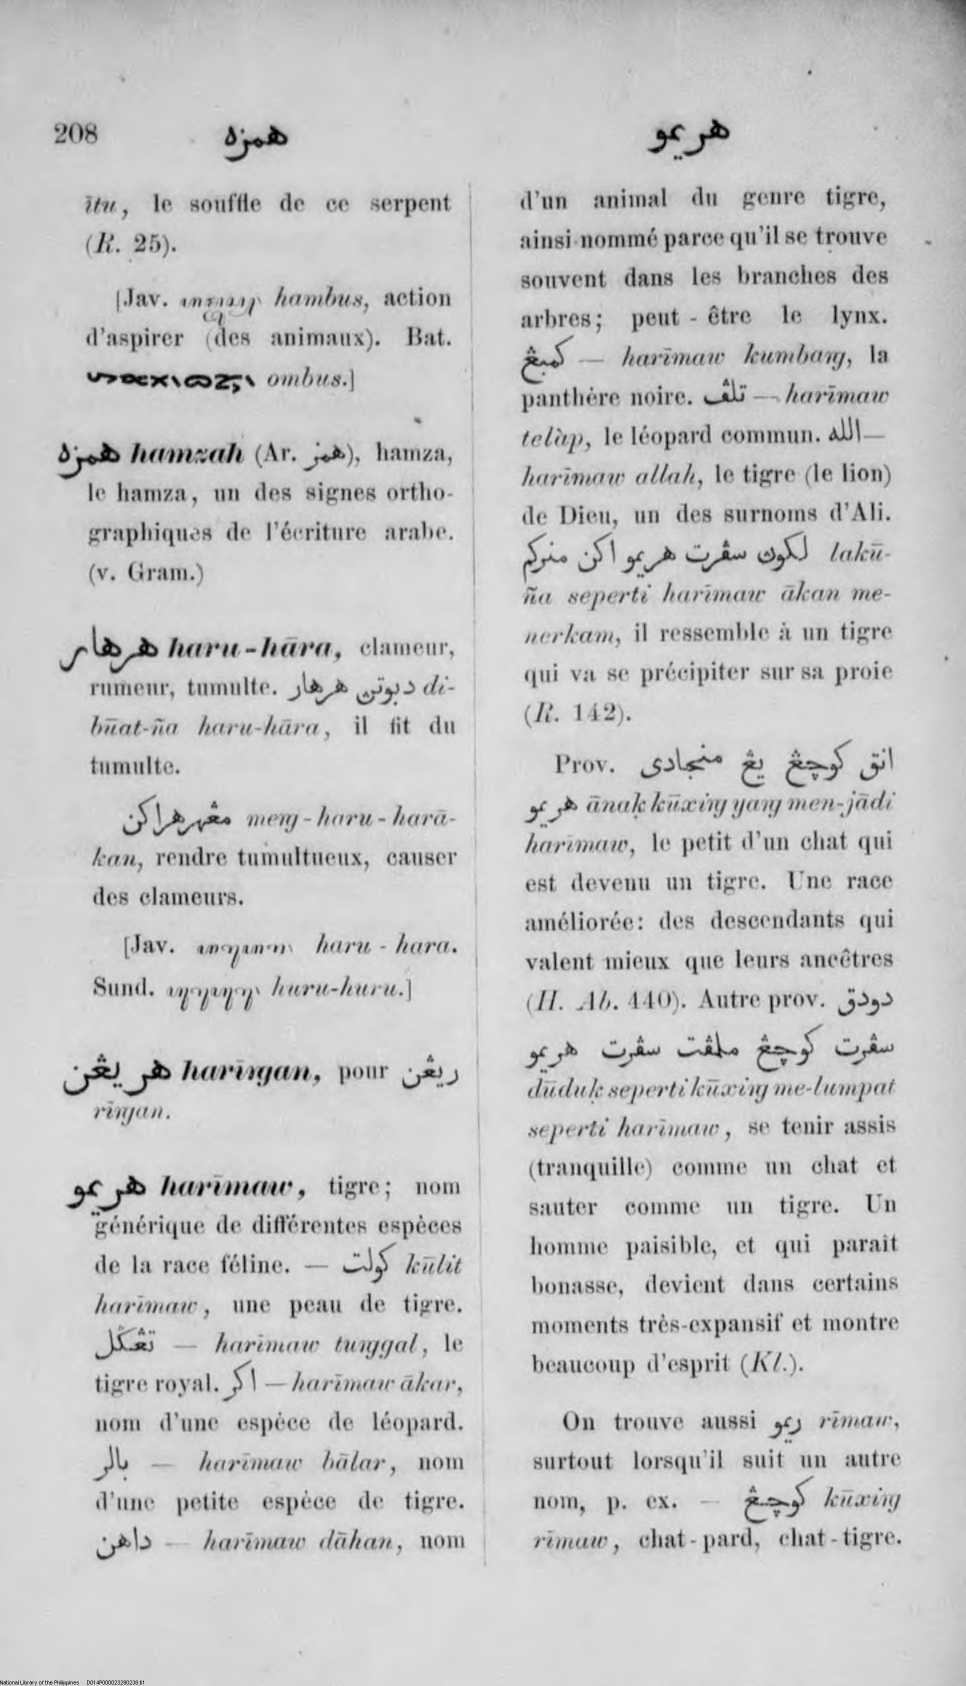 208 همزه هريمو
ītu, le souffle de ce serpent
(R. 25).
[Jav. hambus, action
d'aspirer (des animaux). Bat.
ombus.]
همزه hamzah (Ar. همز), hamza,
le hamza, un des signes ortho-
graphiques de l'écriture arabe.
(v. Gram.)
هرهار haru-hāra, clameur,
rumeur, tumulte. دبوتن هرهار di-
būat-ña haru-hāra, il fit du
tumulte.
مڠهرهراكن meṅg-haru-harā-
kan, rendre tumultueux, causer
des clameurs.
[Jav. haru-hara.
Sund. huru-huru.]
هريڠن harīṅgan, pour ريڠن
rīṅgan.
هريمو harīmaw, tigre; nom
générique de différentes espèces
de la race féline. — كولت kūlit
harīmaw, une peau de tigre.
تڠݢل — harīmaw tuṅggal, le
tigre royal. اكر — harīmaw ākar,
nom d'une espèce de léopard.
بالر — harīmaw bālar, nom
d'une petite espèce de tigre.
داهن — harīmaw dāhan, nom
d'un animal du genre tigre,
ainsi nommé parce qu'il se trouve
souvent dans les branches des
arbres; peut-être le lynx.
كمبڠ — harīmaw kumbaṅg, la
panthère noire. تلڤ — harīmaw
telàp, le léopard commun. الله —
harīmaw allah, le tigre (le lion)
de Dieu, un des surnoms d'Ali.
لكون سڤرت هريمو اكن منركم lakū-
ña seperti harīmaw ākan me-
nerkam, il ressemble à un tigre
qui va se précipiter sur sa proie
(R. 142).
Prov. انق كوچڠ يڠ منجادى
هريمو ānaḳ kūxiṅg yaṅg men-jādi
harīmaw, le petit d'un chat qui
est devenu un tigre. Une race
améliorée: des descendants qui
valent mieux que leurs ancêtres
(H. Ab. 440). Autre prov. دودق
سڤرت كوچڠ ملمڤت سڤرت هريمو
dūduḳ seperti kūxiṅg me-lumpat
seperti harīmaw, se tenir assis
(tranquille) comme un chat et
sauter comme un tigre. Un
homme paisible, et qui paraît
bonasse, devient dans certains
moments très-expansif et montre
beaucoup d'esprit (Kl.).
On trouve aussi ريمو rīmaw,
surtout lorsqu'il suit un autre
nom, p. ex. — كوچڠ kūxiṅg
rīmaw, chat-pard, chat-tigre.
National Library of the Philippines